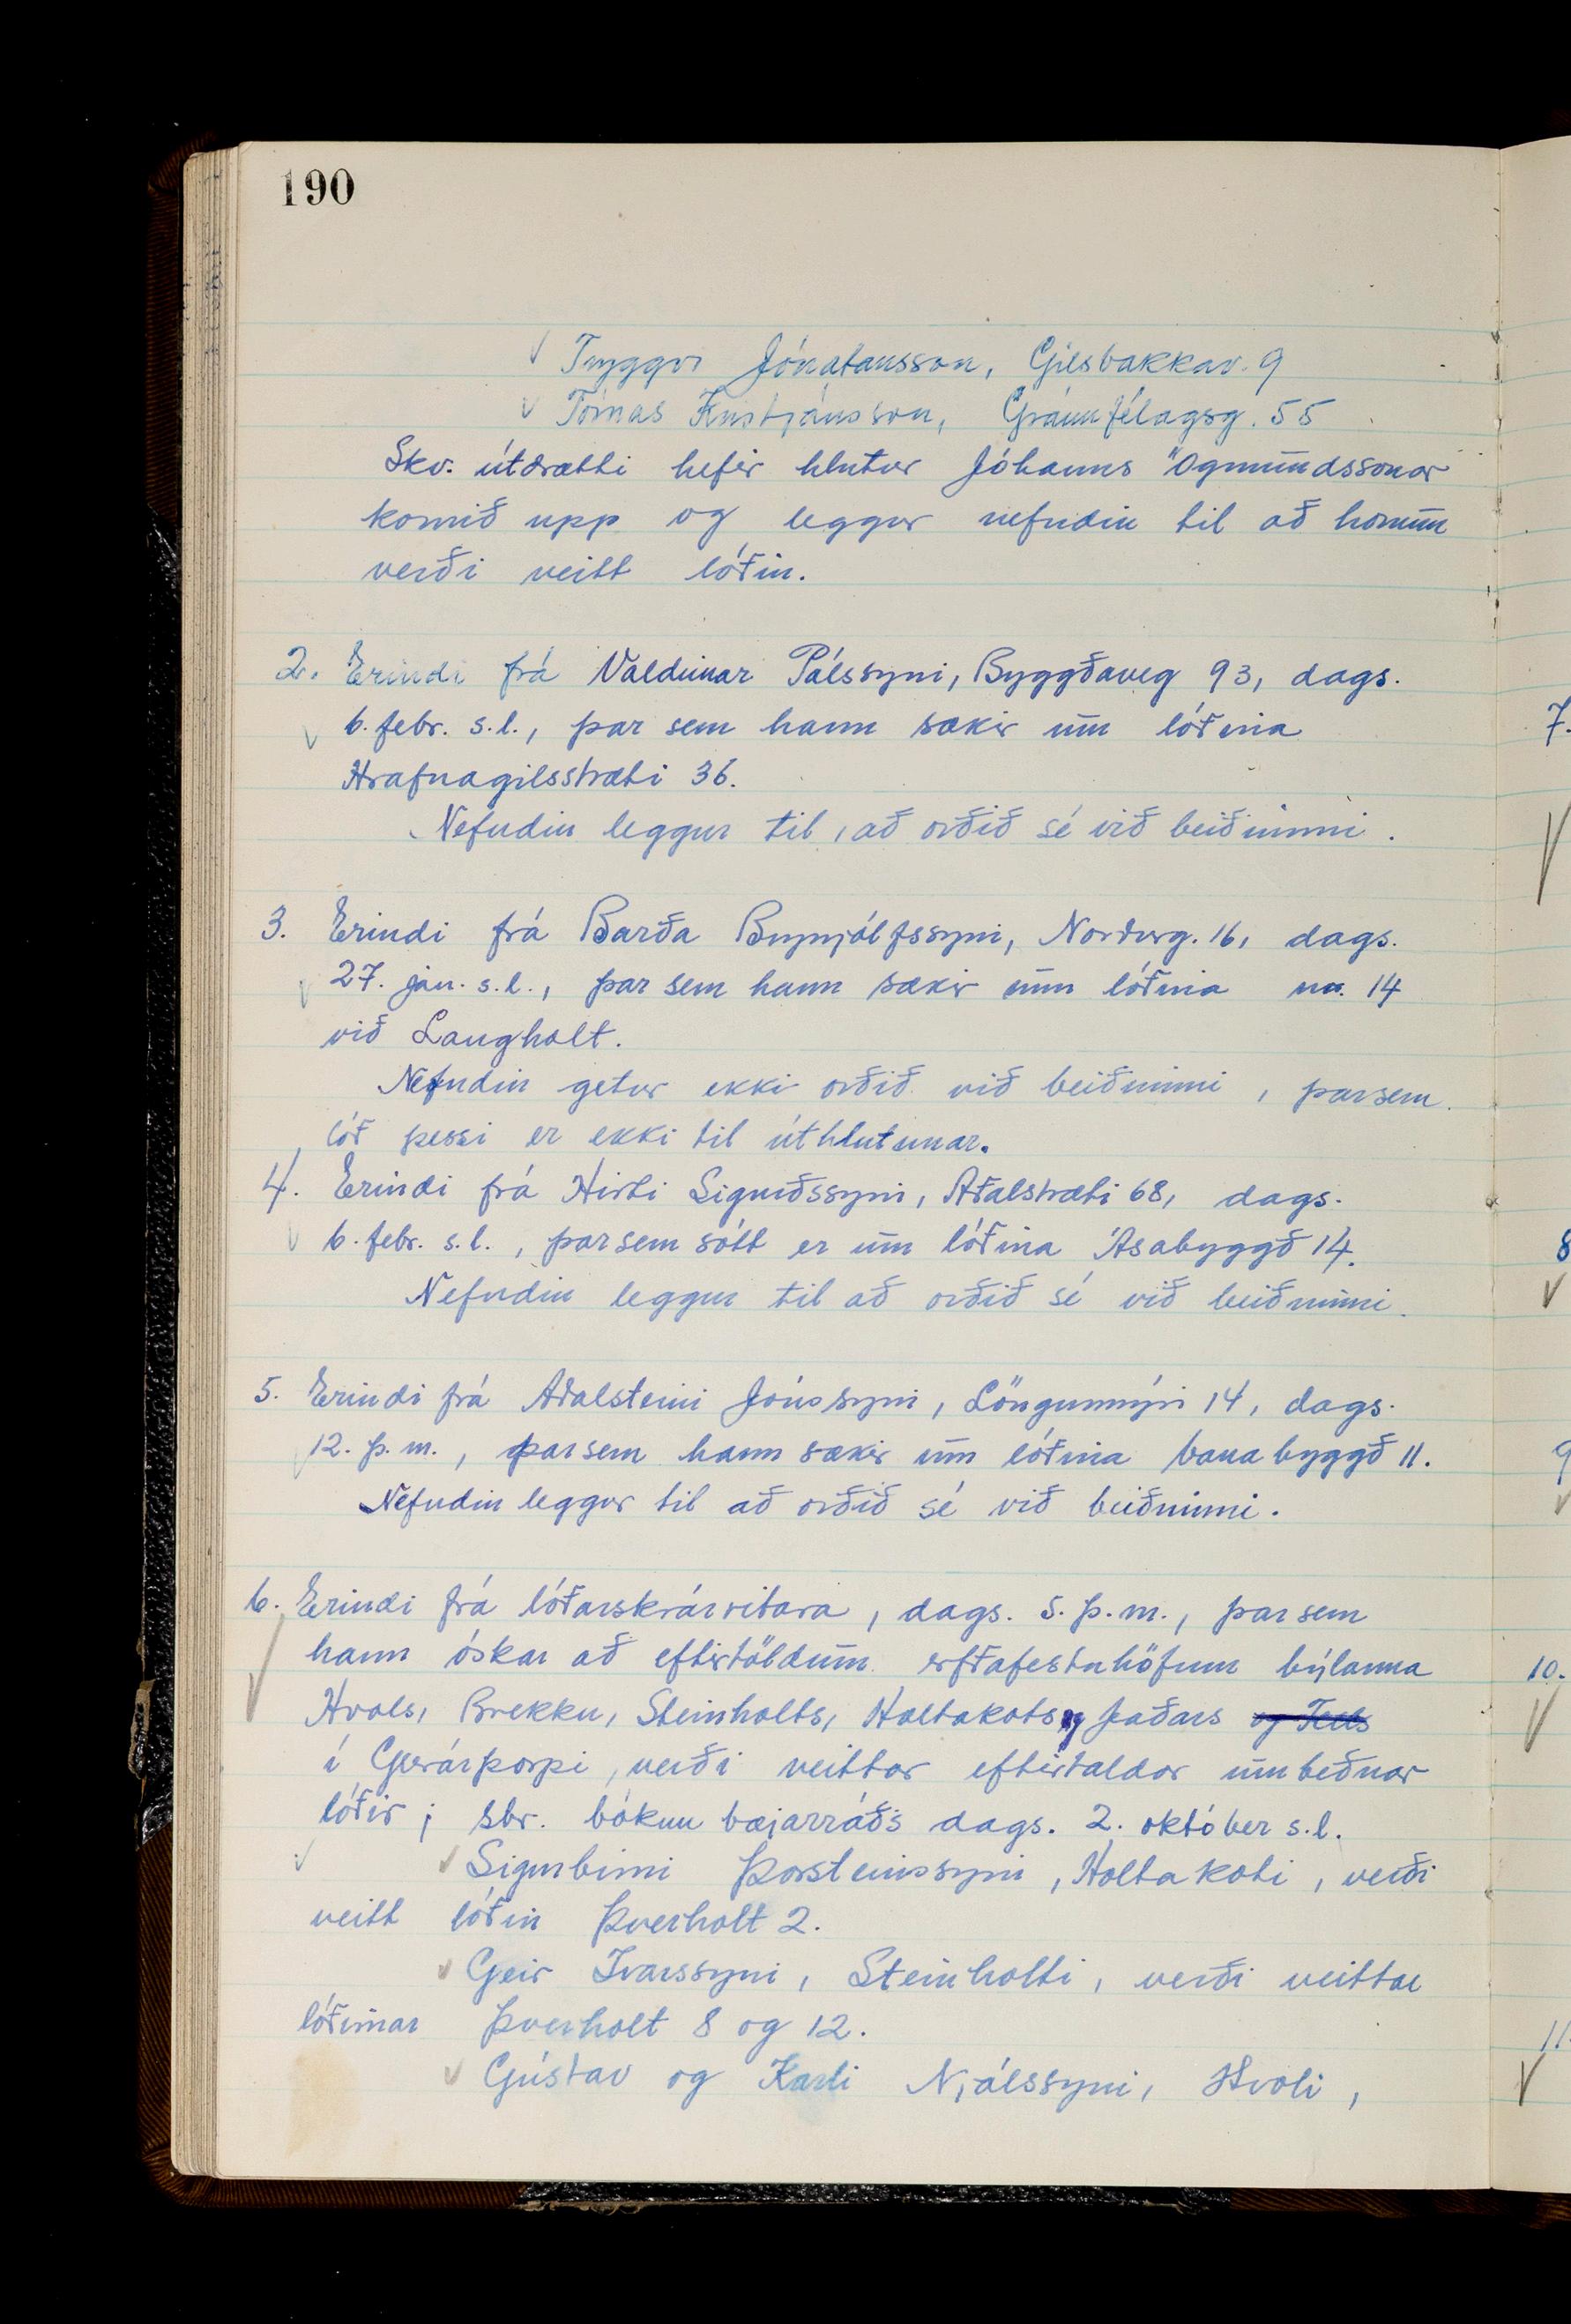 190
Tryggvi Jónatansson, Gilsbakkav. 9
Tómas Kristjánsson, Gránufélagsg. 55
Skv. útdrætti hefir hlutur Jóhanns Ögmundssonar
komið upp og leggur nefndin til að honum
verði veitt lóðin.
2. Erindi frá Valdimar Pálssyni, Byggðaveg 93, dags.
6. febr. s.l., þar sem hann sækir um lóðina
Hrafnagilsstræti 36.
Nefndin leggur til, að orðið sé við beiðninni.
3. Erindi frá Barða Brynjólfssyni, Norðurg. 16, dags.
27. jan. s.l., þar sem hann sækir um lóðina nr. 14
við Langholt.
Nefndin getur ekki orðið við beiðninni, þar sem
lóð þessi er ekki til úthlutunar.
4. Erindi frá Hirti Sigurðssyni, Aðalstræti 68, dags.
6. febr. s.l., þar sem sótt er um lóðina Ásabyggð 14.
Nefndin leggur til að orðið sé við beiðninni.
5. Erindi frá Aðalsteini Jónssyni, Löngumýri 14, dags.
12. þ.m., þar sem hann sækir um lóðina Vanabyggð 11.
Nefndin leggur til að orðið sé við beiðninni.
6. Erindi frá lóðarskrárritara, dags. 5. þ.m., þar sem
hann óskar að eftirtöldum erfðafestuhöfum býlanna
Hvols, Brekku, Steinholts, Holtakots og Jaðars og Fells
í Glerárþorpi, verði veittar eftirtaldar umbeðnar
lóðir; sbr. bókun bæjarráðs dags. 2. október s.l.
Sigurbirni Þorsteinssyni, Holtakoti, verði
veitt lóðin Þverholt 2.
Geir Ívarssyni, Steinholti, verði veittar
lóðirnar Þverholt 8 og 12.
Gústav og Karli Njálssyni, Hvoli,
7.
8
9
10.
11.